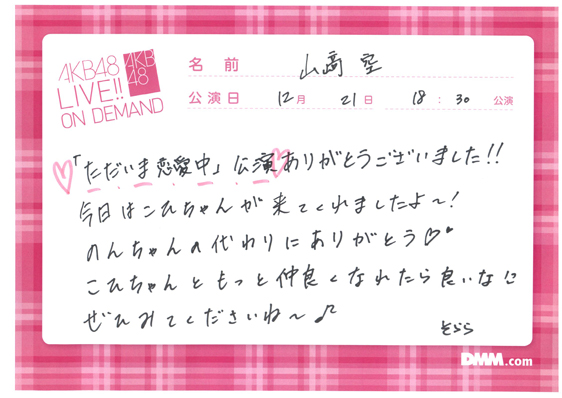 AKB48
LIVE!!
ON DEMAND
AKB
48
名前 山﨑空
公演日 12月 21日 18:30 公演
「ただいま恋愛中」公演ありがとうございました!!
今日はこひちゃんが来てくれましたよ～!
のんちゃんの代わりにありがとう♡♥
こひちゃんともっと仲良くなれたら良いな
ぜひみてくださいね～♪
そらら
DMM.com